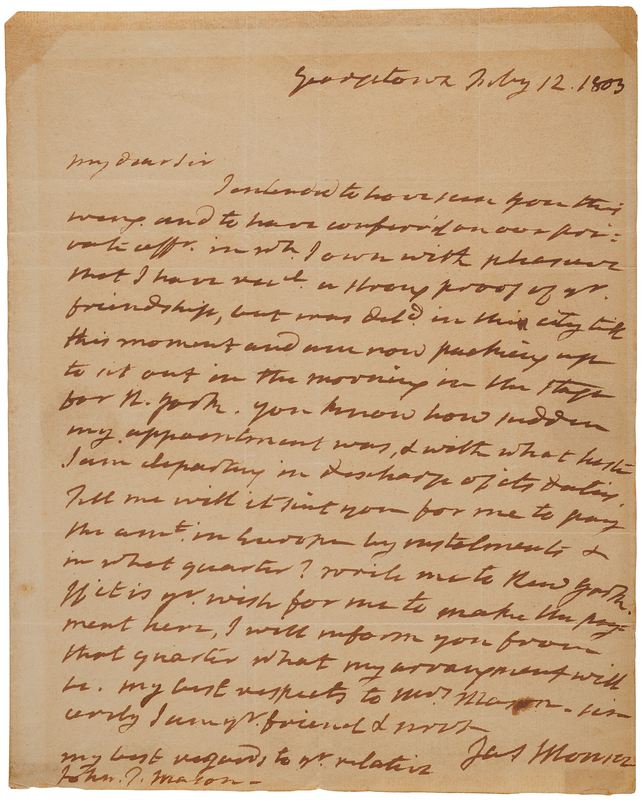 Georgetown Feby 12. 1803
my dear Sir
I intended to have seen you this
eveng. and to have conferr'd on our pri-
vate affr. in wh. I own with pleasure
that I have recd. a strong proof of yr.
friendship, but was deld. in this city till
this moment and am now packing up
to sit out in the morning in the stage
for N. York. you know how sudden
my appointment was, & with what haste
I am departing in discharge of its duties.
Tell me will it suit you for me to pay
the amt. in Europe by instalments &
in what quarter? write me to New York.
If it is yr. wish for me to make the pay-
ment here, I will inform you from
that quarter what my arrangment will
be. my best respects to Mrs. Mason. sin
cerely I am yr. friend & servt
Jas Monroe
my best regards to yr. relative
John. T. Mason.-